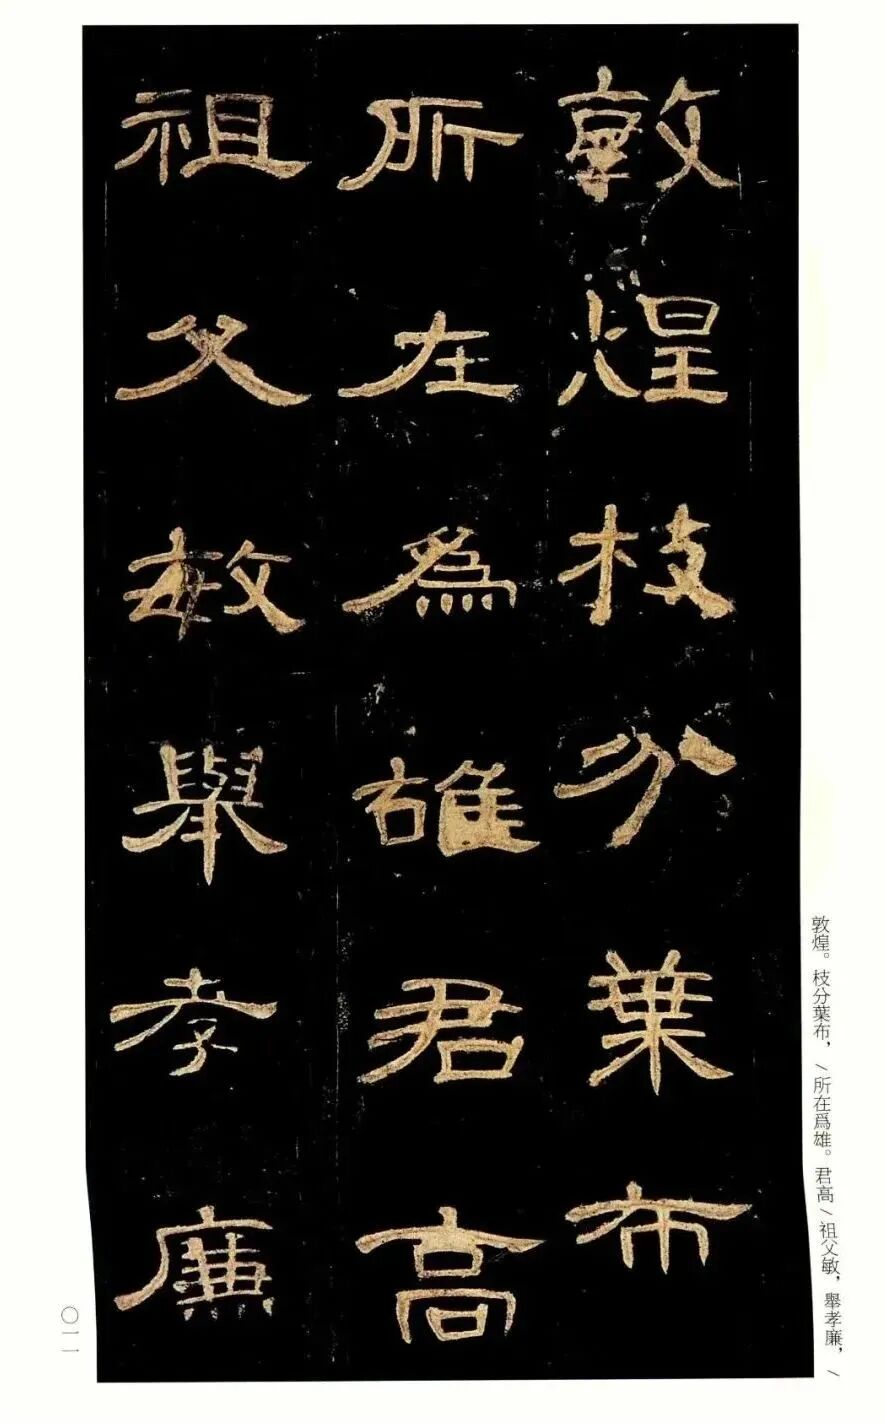 敦煌枝分葉布
所在為雄君高
祖父敏舉孝廉
敦煌。枝分葉布，/所在爲雄。君高/祖父敏，舉孝廉，/
〇一一